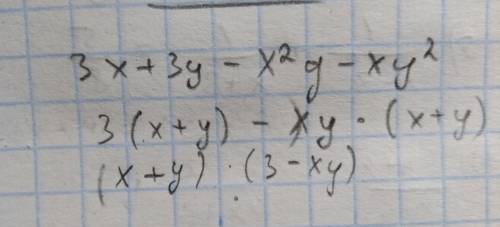 3x+3y-x²y-xy²
3(x+y)-xy·(x+y)
(x+y)·(3-xy)